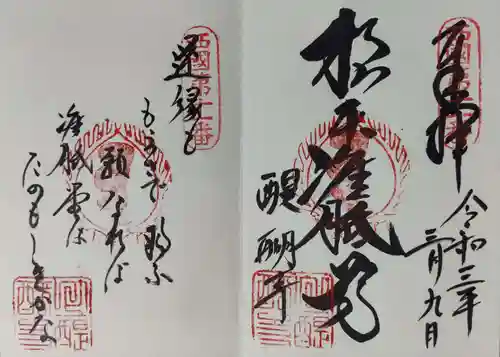 西國第十一番
奉拝
令和三年
三月九日
根本准胝
醍醐寺
西國第十一番
逆縁も
もらさで救ふ
願なれば
准胝堂は
たのもしきかな